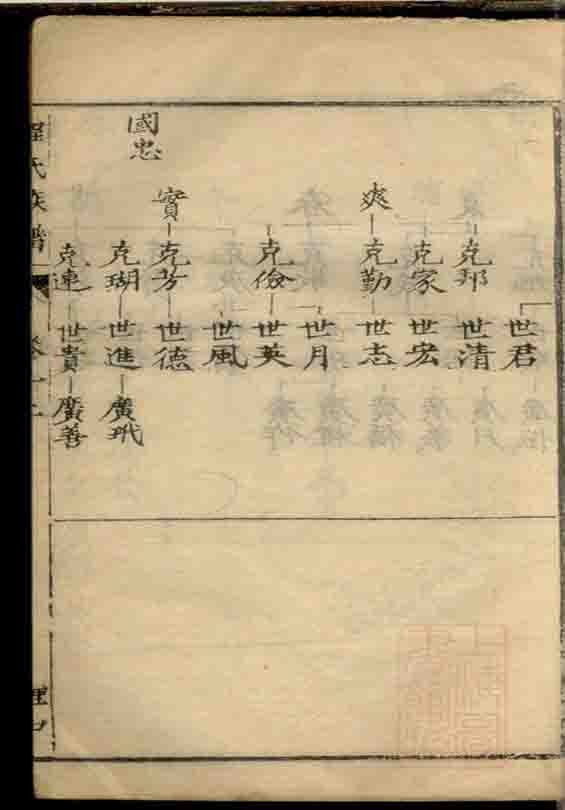 世君
克邦 世清
克家 世宏
爽 克勤 世志
世月
克儉 世英
世風
實 克芳 世德
國忠
克瑚 世進 廣玳
克連 世貴 廣善
程氏族譜